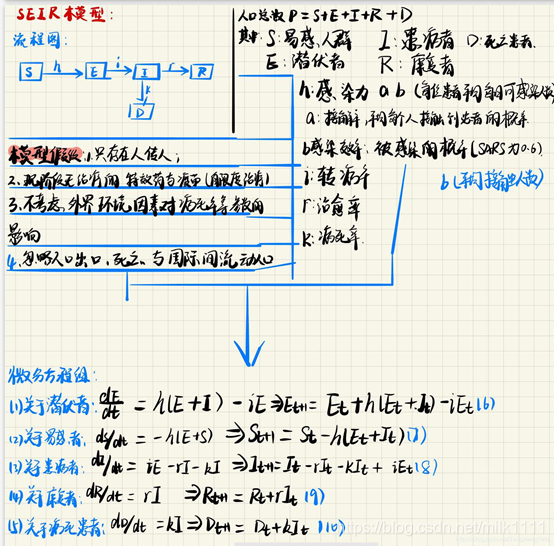 SEIR模型:
流程图:
S h E i I r R
k
D
人口总数 P = S+E+I+R+D
其中 S:易感人群 I:患病者 D:死亡患者.
E:潜伏者 R:康复者
h:感染力 ab
a:接触率,
b感染效率:被感染的概率(SARS为0.6)
b(平均接触人数)
i:转病率
r:治愈率
k:病死率.
模型假设:1.只存在人传人;
2.
3.不考虑,外界环境因素对病死率等数值的
影响
4.忽略人口出口,死亡,与国际间流动人口
微分方程组:
(1)关于潜伏者: dE/dt = h(E+I) - iE ⇒ Et+1 = Et + h(Et+It) - iEt (6)
(2)关于易感者: ds/dt = -h(E+S) ⇒ St+1 = St - h(Et+It) (7)
(3)关于患病者: dI/dt = iE - rI - kI ⇒ It+1 = It - rIt - kIt + iEt (8)
(4)关于康复者: dR/dt = rI ⇒ Rt+1 = Rt + rIt (9)
(5)关于病死患者: dD/dt = kI ⇒ Dt+1 = Dt + kIt (10)
https://blog.csdn.net/milk1111